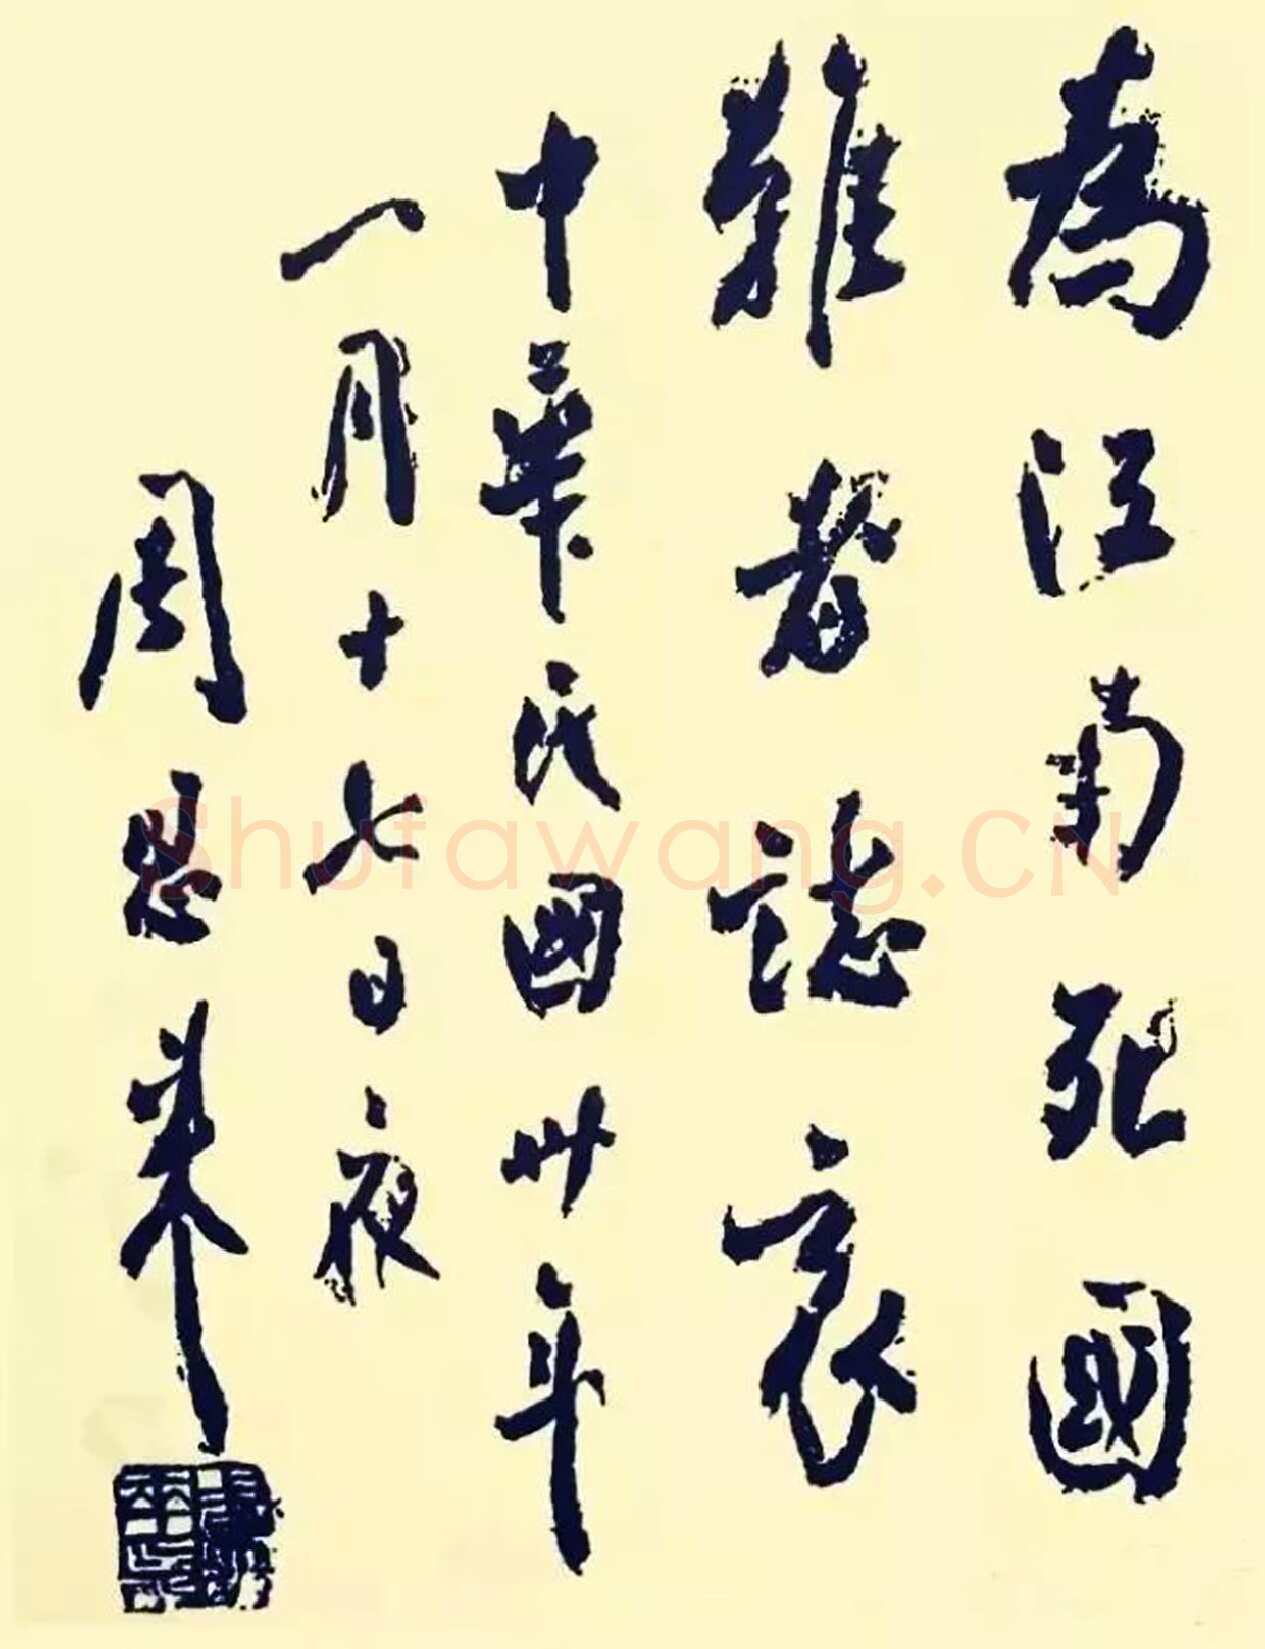 為江南死國
難者誌哀
中華民國卅年
一月十七日夜
周恩来
Shufawang.CN